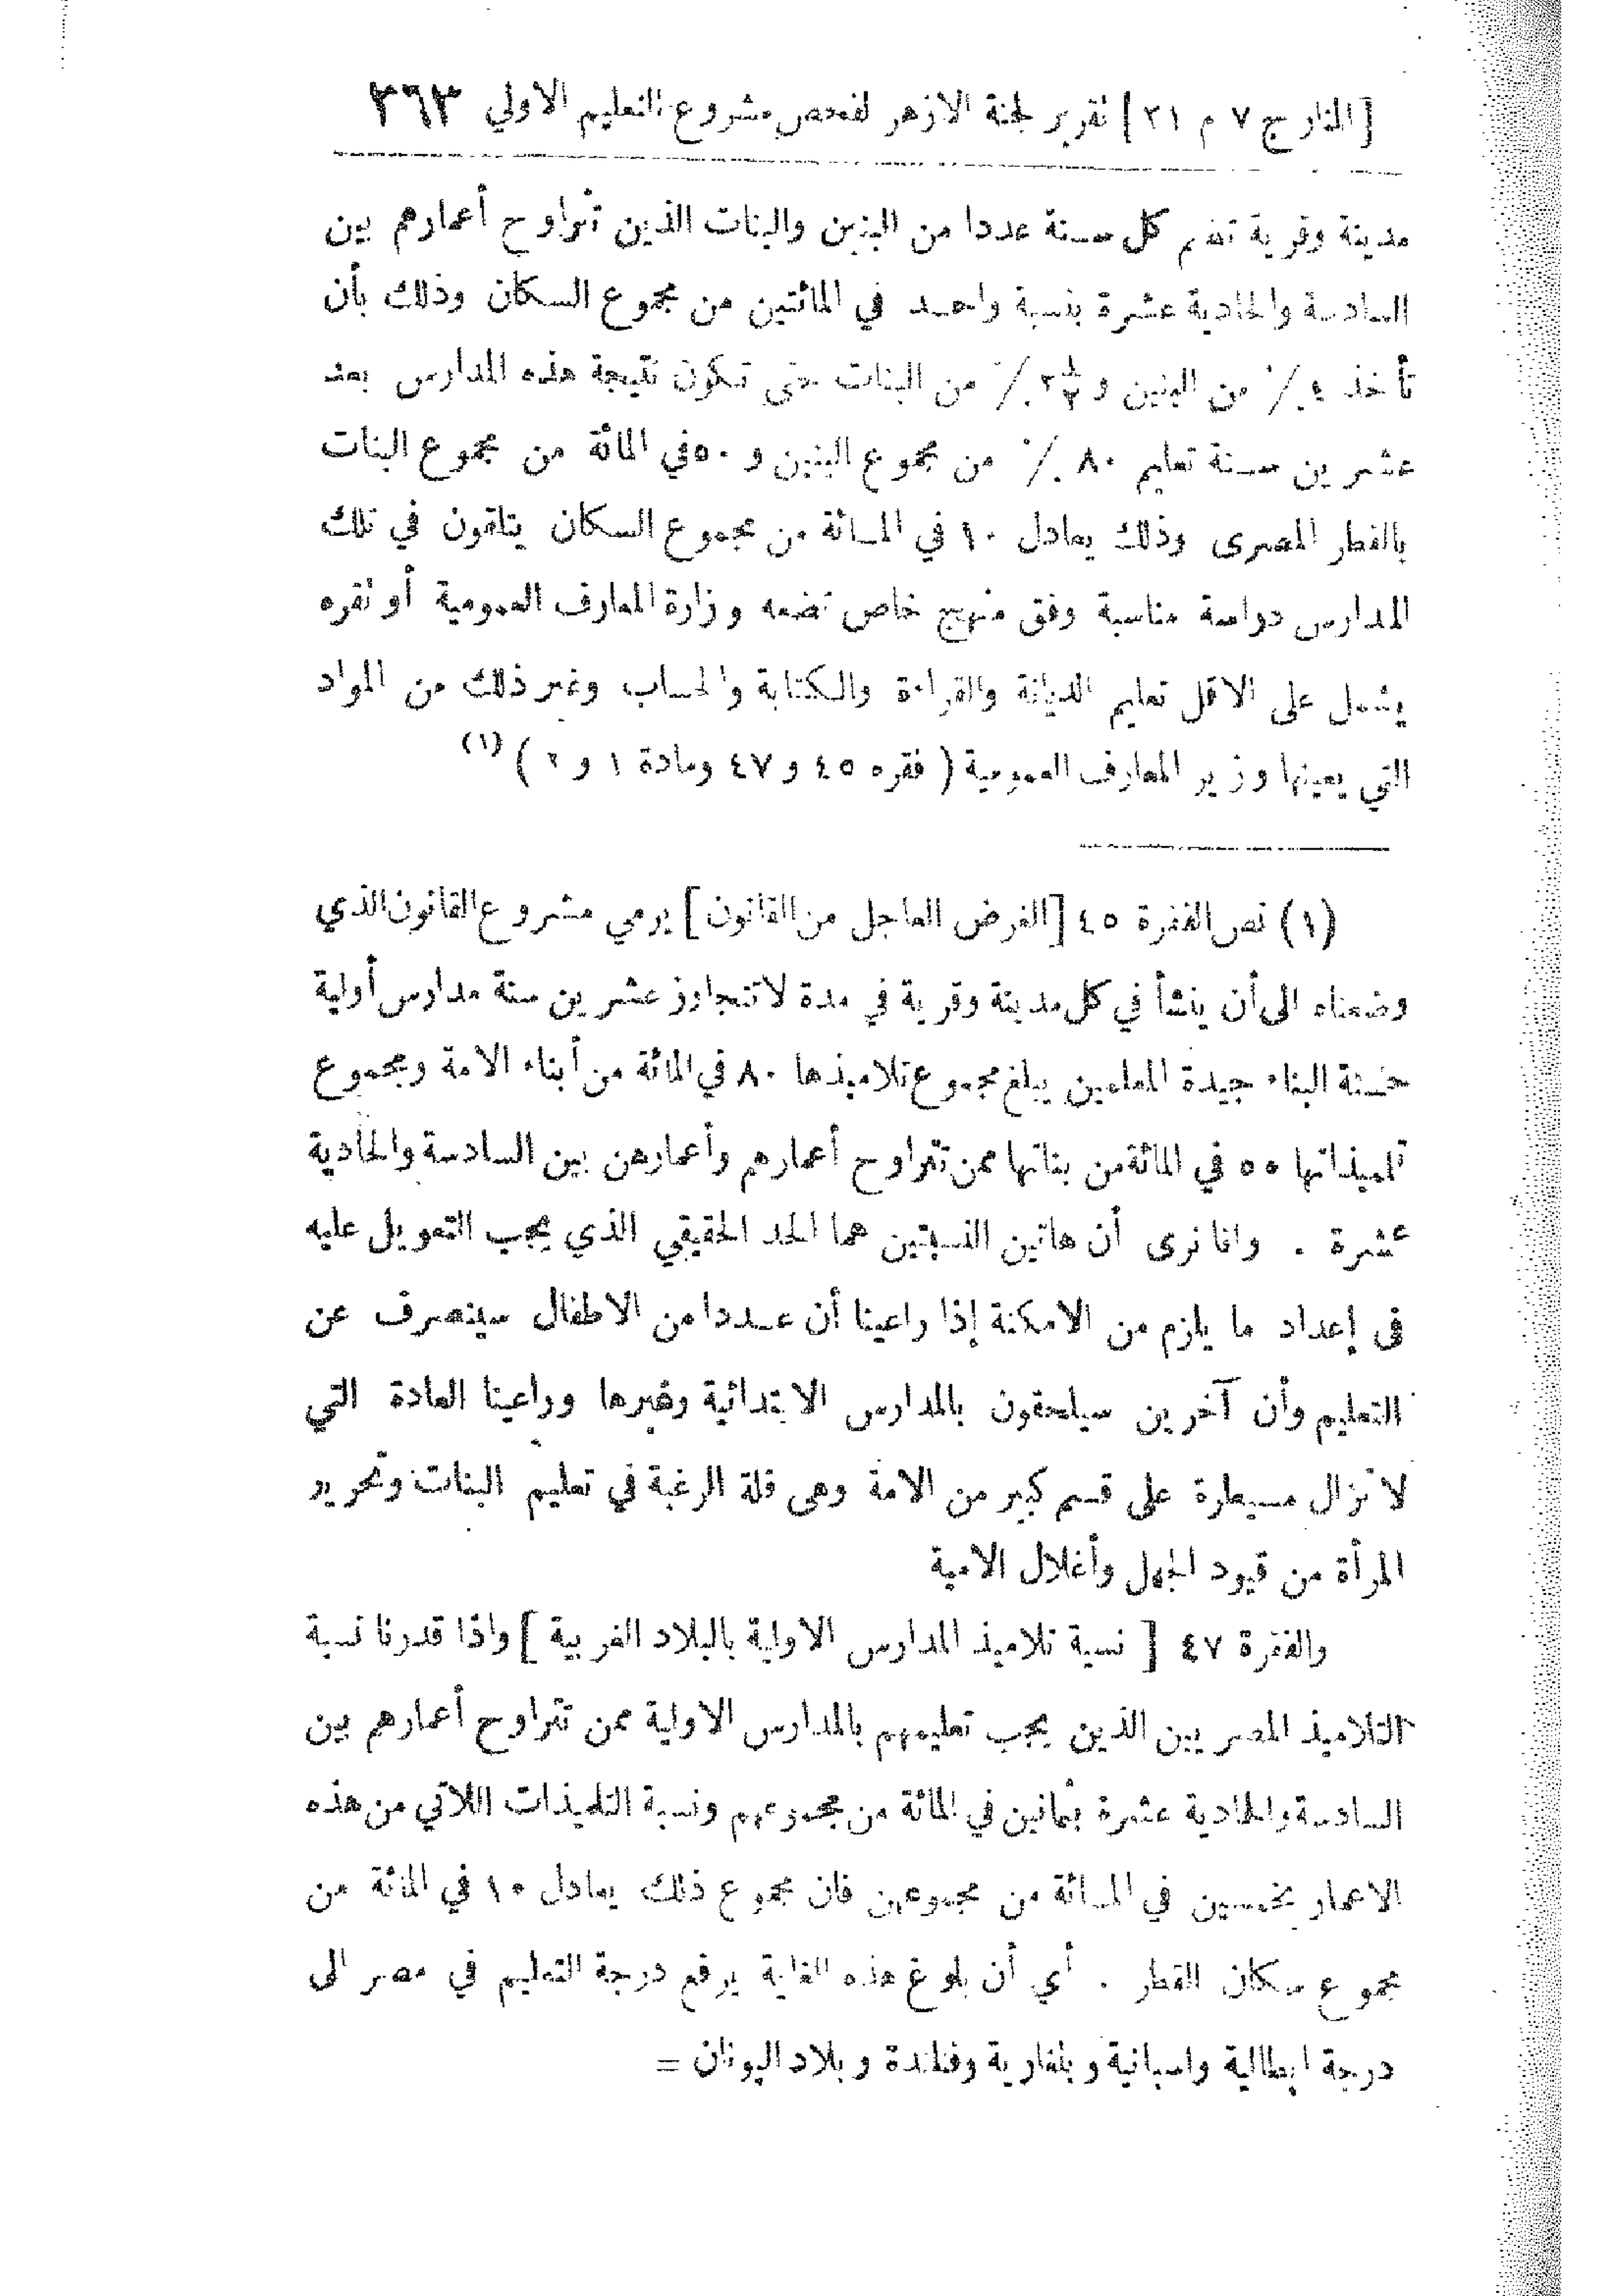 [المنار ج ٧ م ٢١] تقرير لجنة الازهر لفحص مشروع التعليم الاولي ٣٦٣
مدينة وقرية تضم كل سنة عددا من البنين والبنات الذين تتراوح أعمارهم بين
السادسة والحادية عشرة بنسبة واحد في المائتين من مجموع السكان وذلك بأن
تأخذ ٤٪ من البنين و ٢½٪ من البنات حتى تكون نتيجة هذه المدارس بعد
عشرين سنة تعليم ٨٠٪ من مجموع البنين و ٥٠ في المائة من مجموع البنات
بالقطر المصرى وذلك يعادل ١٠ في المائة من مجموع السكان يتلقون في تلك
المدارس دراسة مناسبة وفق منهج خاص تضعه وزارة المعارف العمومية أو تقره
يشمل على الاقل تعليم الديانة والقراءة والكتابة والحساب وغير ذلك من المواد
التي يعينها وزير المعارف العمومية (فقره ٤٥ و ٤٧ ومادة ١ و ٢) (١)
(١) نص الفقرة ٤٥ [الغرض العاجل من القانون] يرمي مشروع القانون الذي
وضعناه الى أن ينشأ في كل مدينة وقرية في مدة لا تتجاوز عشرين سنة مدارس أولية
حسنة البناء جيدة المعلمين يبلغ مجموع تلاميذها ٨٠ في المائة من أبناء الامة ومجموع
تلميذاتها ٥٠ في المائة من بناتها ممن تتراوح أعمارهم وأعمارهن بين السادسة والحادية
عشرة . وانا نرى أن هاتين النسبتين هما الحد الحقيقي الذي يجب التعويل عليه
فى إعداد ما يلزم من الامكنة إذا راعينا أن عددا من الاطفال سينصرف عن
التعليم وأن آخرين سيلحقون بالمدارس الابتدائية وغيرها وراعينا العادة التي
لا تزال مسيطرة على قسم كبير من الامة وهى قلة الرغبة في تعليم البنات وتحرير
المرأة من قيود الجهل وأغلال الامية
والفقرة ٤٧ [نسبة تلاميذ المدارس الاولية بالبلاد الغربية] واذا قدرنا نسبة
التلاميذ المصريين الذين يجب تعليمهم بالمدارس الاولية ممن تتراوح أعمارهم بين
السادسة والحادية عشرة بثمانين في المائة من مجموعهم ونسبة التلميذات اللاتي من هذه
الاعمار بخمسين في المائة من مجموعهن فان مجموع ذلك يعادل ١٠ في المائة من
مجموع سكان القطر . أي أن بلوغ هذه الغاية يرفع درجة التعليم في مصر الى
درجة ايطالية واسبانية وبلغارية وفنلندة وبلاد اليونان =